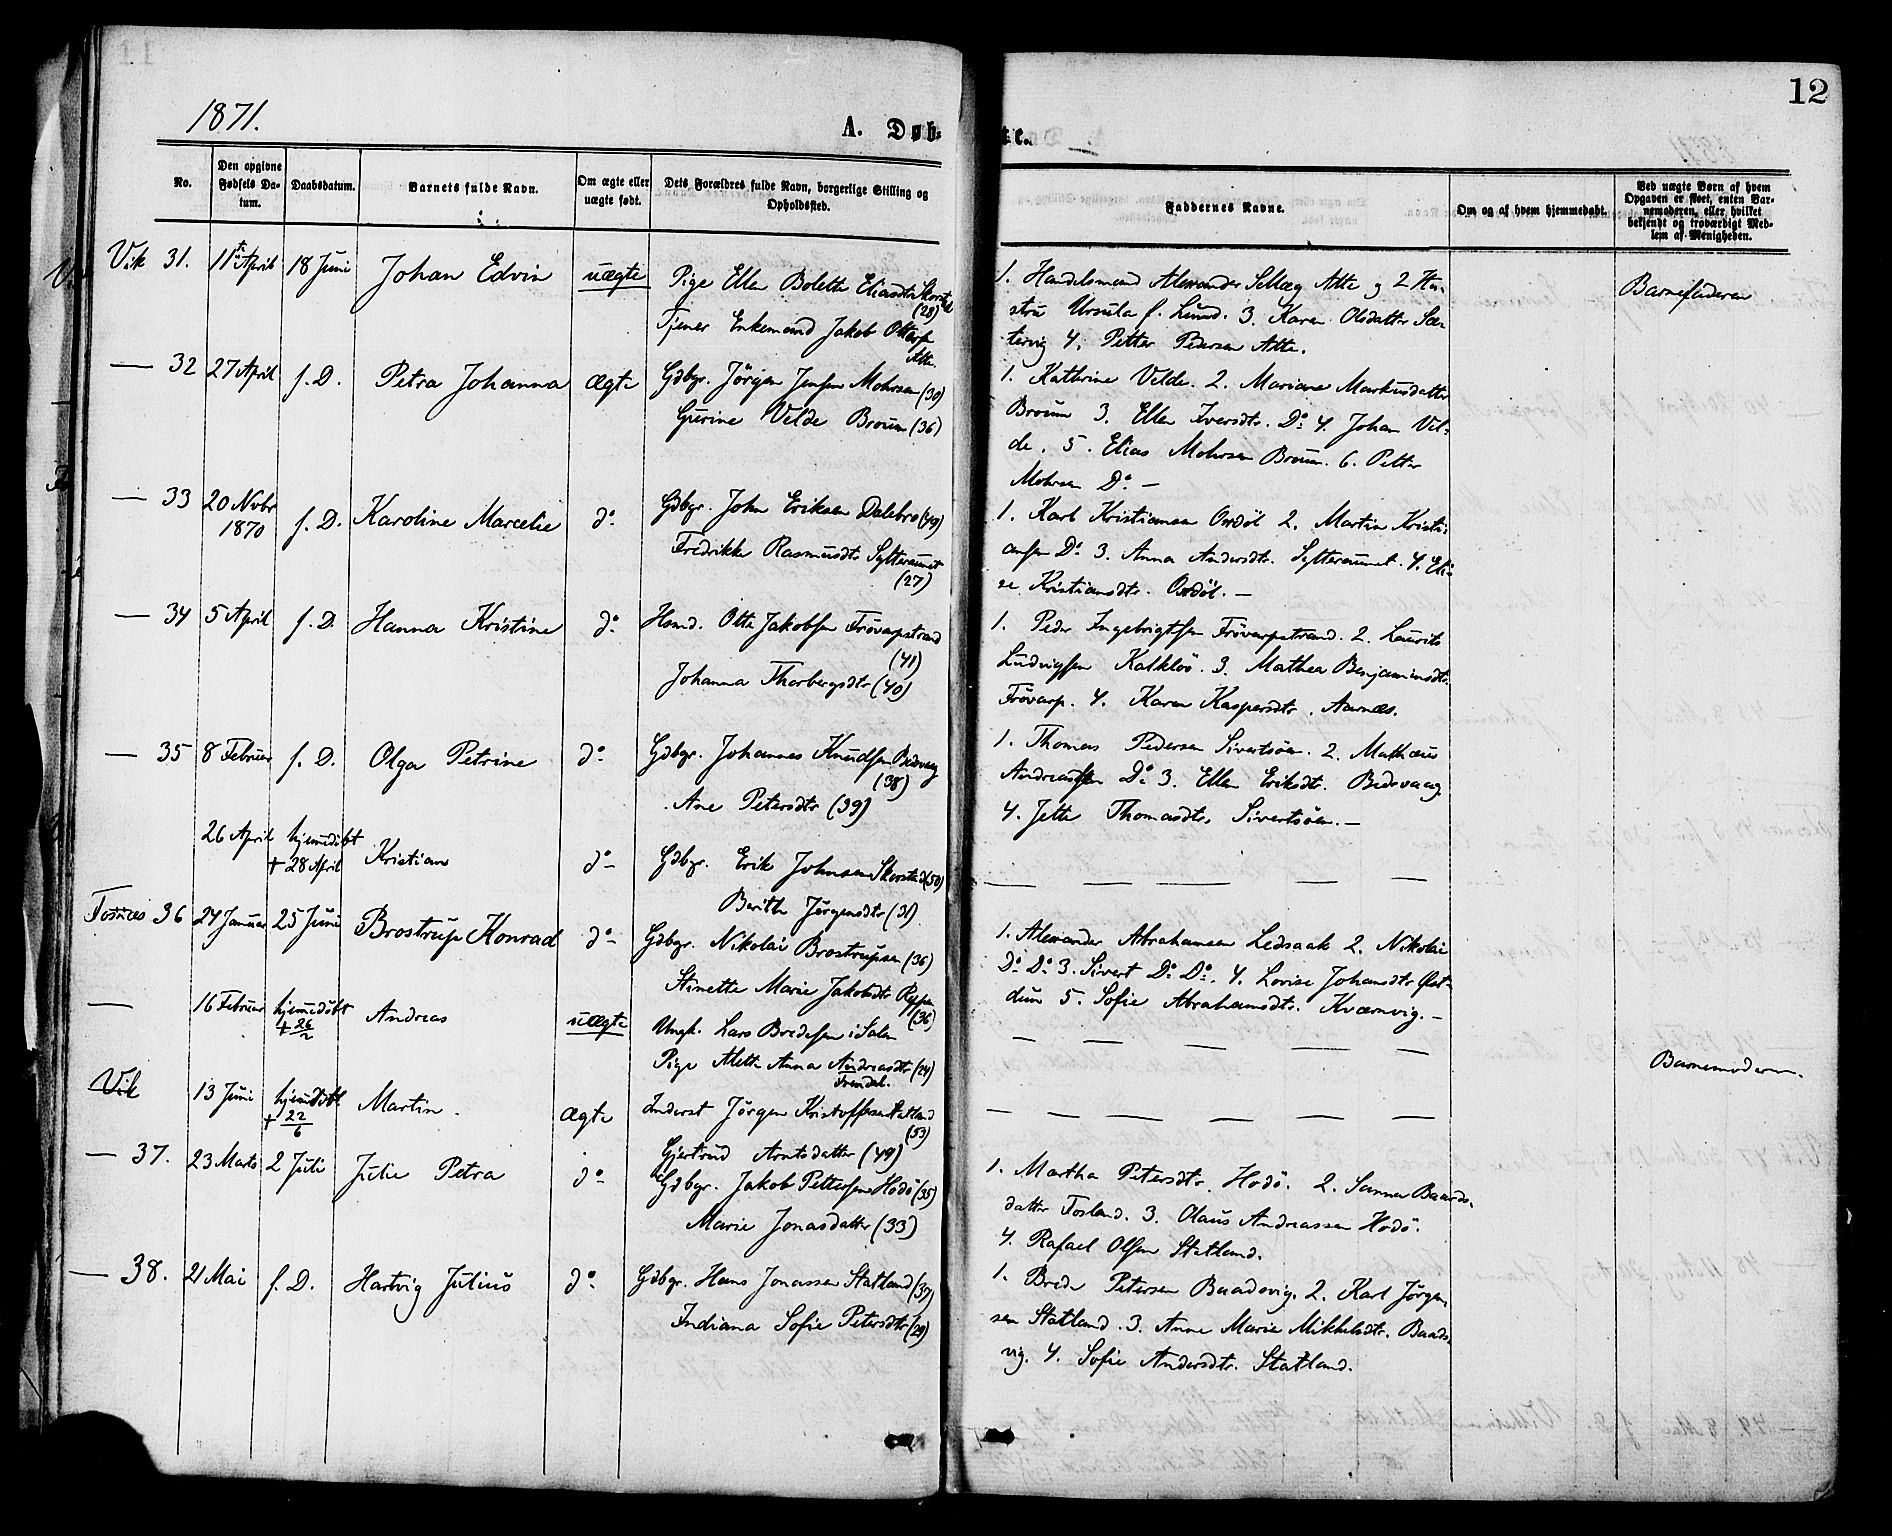 12
1871.
A. Døb-
te.
No.
Den opgivne Fødsels Da-tum.
Daabsdatum.
Barnets fulde Navn.
Om ægte eller uægte født.
Dets Forældres fulde Navn, borgerlige Stilling og Opholdssted.
Faddernes Navne.
Om og af hvem hjemmedøbt.
Ved uægte Børn af hvem Opgaven er skeet, enten Bar-nemoderen, eller hvilket bekjendt og troværdigt Med-lem af Menigheden.
Vik 31. 11te April 18 Juni Johan Edvin uægte
Pige Ellen Bolette Eliasdtr
(28)
Tjener Enkemand Jakob
1. Handelsmand Alexander Atte og 2 Hu-
stru Ursula f. Lund. 3. Karen Olsdatter Sæ-
tervig 4. Petter Pedersen Atte.
Barnefaderen
— 32 27 April s. D. Petra Johanna ægte
Gdbgr. Jørgen Jensen Mohrsen (30)
Gurine Velde Broum (36)
1. Kathrine Velde. 2. Mariane Markusdatter
Broum 3. Ellen Iversdtr. Do 4. Johan Vel-
de. 5. Elias Mohrsen Broum. 6. Petter
Mohrsen Do —
— 33 20 Novbr 1870 s. D. Karoline Marcelie do
Gdbgr. John Eriksen Dalebro (49)
Fredrikke Rasmusdtr Sylteraunet
(27)
1. Karl Kristiansen 2. Martin Kristi-
ansen Do 3. Anna Andersdtr. Sylteraunet. 4. Eli-
se Kristiansdtr. —
— 34 5 April s. D. Hanna Kristine do
Hsmd. Otto Jakobsen Frøvarpstrand
(41)
Johanna Thorbergsdtr (40)
1. Peder Ingebrigtsen Frøvarpstrand. 2. Laurits
Ludvigsen Kalkløv. 3. Mathea Benjaminsdtr.
Frøvarp. 4. Karen Kaspersdtr. Aarnæs.
— 35 8 Februar s. D. Olga Petrine do
Gdbgr. Johannes Knudsen Bedsvaag
(38)
Ane Petersdtr (39)
1. Thomas Pedersen Sivertsøen. 2. Mathæus
Andreassen Do 3. Ellen Eriksdtr. Bedsvaag
4. Jette Thomasdtr. Sivertsøen. —
26 April hjemedøbt + 28 April Kristian do —
Gdbgr. Erik Johnsen Skorstad (50)
Berith Jørgensdtr (31)
— — — — — —
Fosnæs 36 24 Januar 25 Juni Brostrup Konrad do —
Gdbgr. Nikolai Brostrupsen (36)
Stinette Marie Jakobsdtr
(36)
1. Alexander Abrahamsen Ledsaak 2. Nikolai
Do Do 3. Sivert Do Do 4. Lovise Johansdtr
5. Sofie Abrahamsdtr. Kværnvig. —
— 16 Februar hjemedøbt + 26/2 Andreas uægte
Ungk. Lars Bredesen i Salen
Pige Alette Anna Andreasdtr (24)
— — — — — —
Barnemoderen.
Vik 13 Juni hjemedøbt + 22/6 Martin. ægte
Inderst Jørgen Kristoffersen Statland
(53)
Gjertrud Arntsdatter (49)
— — — — — —
— 37. 23 Marts 2 Juli Julie Petra do —
Gdbgr. Jakob Pettersen Hodø (35)
Marie Jonasdatter (33)
1. Martha Petersdtr. Hodø. 2. Sanna Baards-
datter Fosland. 3. Olaus Andreassen Hodø.
4. Rafael Olsen Statland.
— 38. 21 Mai s. D. Hartvig Julius do
Gdbgr. Hans Jonassen Statland (37)
Indiana Sofie Petersdtr (29)
1. Brede Petersen Baadsvig. 2. Karl Jørgen-
sen Statland. 3. Anne Marie Mikkelsdtr. Baads-
vig. 4. Sofie Andersdtr. Statland.